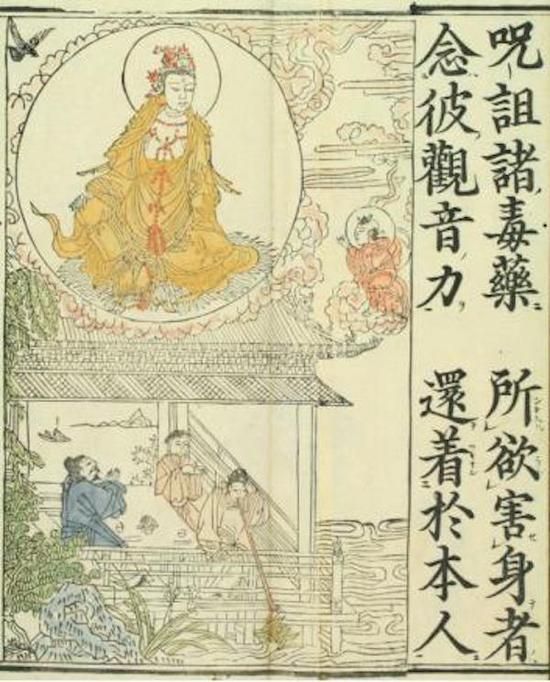 呪詛諸毒藥 所欲害身者
念彼觀音力 還着於本人